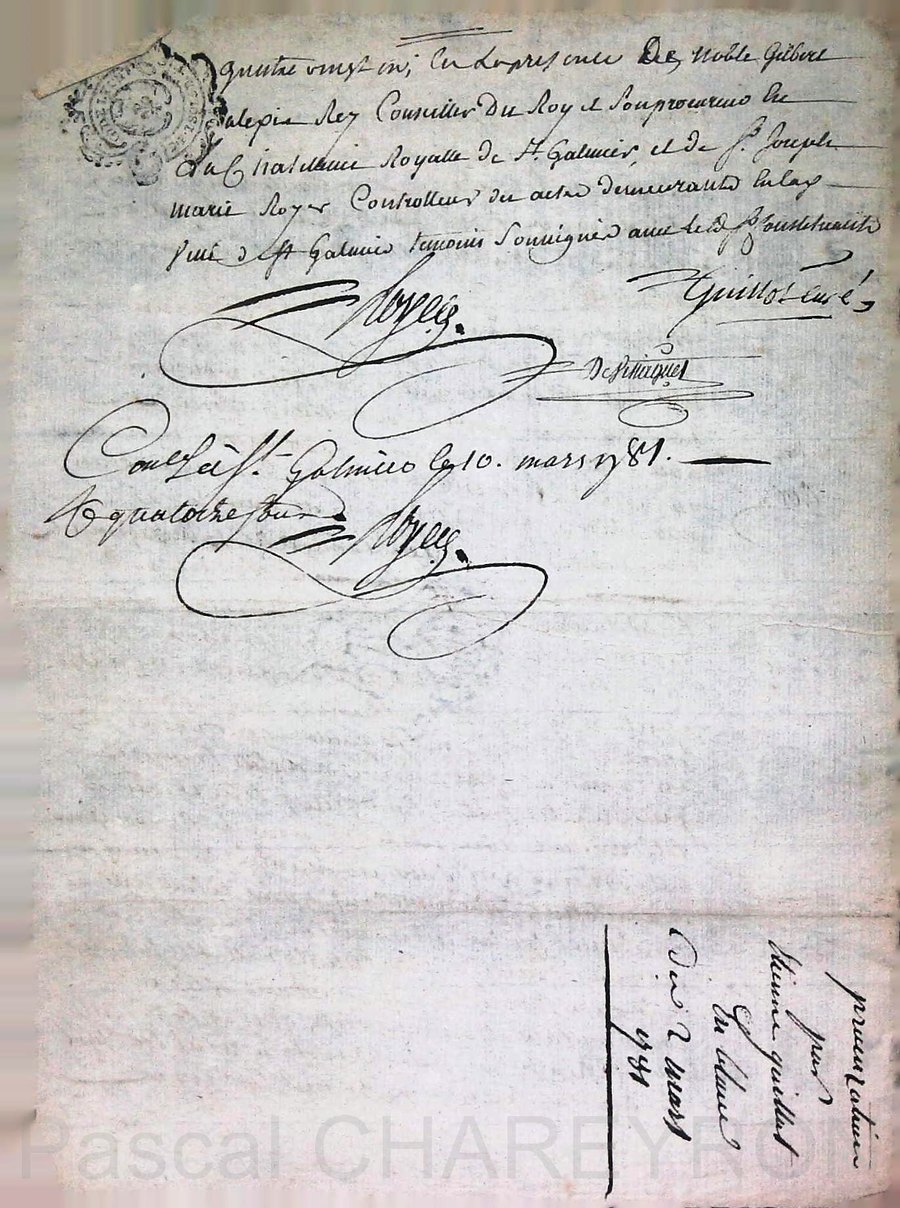 quatre vingt un; En la presence De Noble Gilbert
alepie Rey Conseiller Du Roy et son procureur En
La Chatelenie Royalle de St. Galmier, et de Sr. Joseph
marie Royer Controlleur des actes demeurants En la
ville de St Galmier temoins Soussignés avec led Sr
Royer
Guillot curé
Conlé à St. Galmier le 10. mars 1781.
quatorze sous
Royer
procuration
par
Etienne guillot
En blanc
Du 2 mars
1781
Pascal CHAREYRON